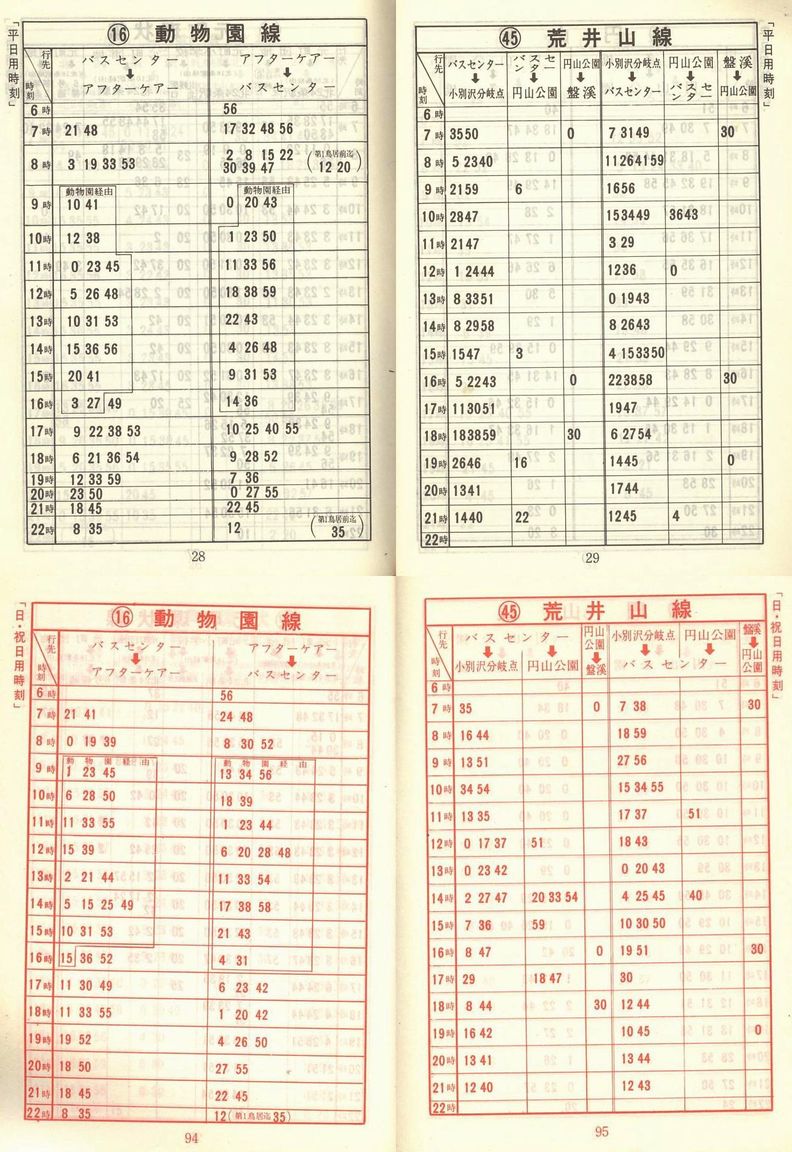 「平日用時刻」
⑯ 動物園線
行先
時刻
バスセンター ↓ アフターケアー
アフターケアー ↓ バスセンター
6時 56
7時 21 48 17 32 48 56
8時 3 19 33 53 2 8 15 22 30 39 47 (第1鳥居前迄 12 20)
動物園経由 動物園経由
9時 10 41 0 20 43
10時 12 38 1 23 50
11時 0 23 45 11 33 56
12時 5 26 48 18 38 59
13時 10 31 53 22 43
14時 15 36 56 4 26 48
15時 20 41 9 31 53
16時 3 27 49 14 36
17時 9 22 38 53 10 25 40 55
18時 6 21 36 54 9 28 52
19時 12 33 59 7 36
20時 23 50 0 27 55
21時 18 45 22 45
22時 8 35 12 (第1鳥居前迄 35)
28
「平日用時刻」
㊺ 荒井山線
行先
時刻
バスセンター ↓ 小別沢分岐点
バスセンター ↓ 円山公園
円山公園 ↓ 盤渓
小別沢分岐点 ↓ バスセンター
円山公園 ↓ バスセンター
盤渓 ↓ 円山公園
6時
7時 35 50 0 7 31 49 30
8時 5 23 40 11 26 41 59
9時 21 59 6 16 56
10時 28 47 15 34 49 36 43
11時 21 47 3 29
12時 1 24 44 12 36 0
13時 8 33 51 0 19 43
14時 8 29 58 8 26 43
15時 15 47 3 4 15 33 50
16時 5 22 43 0 22 38 58 30
17時 11 30 51 19 47
18時 18 38 59 30 6 27 54
19時 26 46 16 14 45 0
20時 13 41 17 44
21時 14 40 22 12 45 4
22時
29
「日・祝日用時刻」
⑯ 動物園線
行先
時刻
バスセンター ↓ アフターケアー
アフターケアー ↓ バスセンター
6時 56
7時 21 41 24 48
8時 0 19 39 8 30 52
動物園経由 動物園経由
9時 1 23 45 13 34 56
10時 6 28 50 18 39
11時 11 33 55 1 23 44
12時 15 39 6 20 28 48
13時 2 21 44 11 33 54
14時 5 15 25 49 17 38 58
15時 10 31 53 21 43
16時 15 36 52 4 31
17時 11 30 49 6 23 42
18時 11 33 55 1 20 42
19時 19 52 4 26 50
20時 18 50 27 55
21時 18 45 22 45
22時 8 35 12 (第1鳥居迄 35)
94
「日・祝日用時刻」
㊺ 荒井山線
行先
時刻
バスセンター ↓ 小別沢分岐点 円山公園
円山公園 ↓ 盤渓
小別沢分岐点 円山公園 ↓ バスセンター
盤渓 ↓ 円山公園
6時
7時 35 0 7 38 30
8時 16 44 18 59
9時 13 51 27 56
10時 34 54 15 34 55
11時 13 35 17 37 51
12時 0 17 37 51 18 43
13時 0 23 42 0 20 43
14時 2 27 47 20 33 54 4 25 45 40
15時 7 36 59 10 30 50
16時 8 47 0 19 51 30
17時 29 18 47 30
18時 8 44 30 12 44
19時 16 42 10 45 0
20時 13 41 13 44
21時 12 40 12 43
22時
95